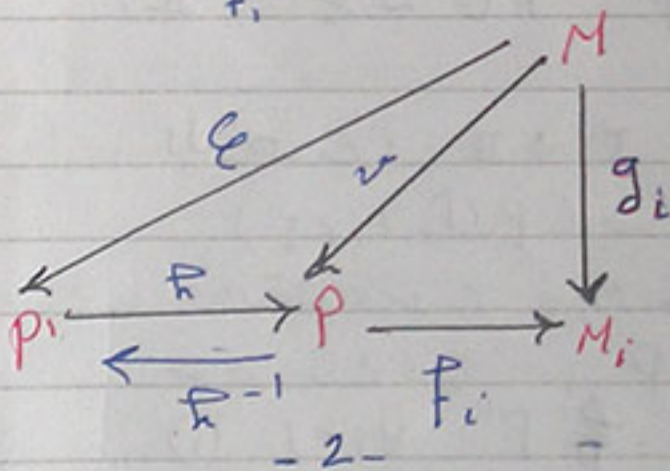 M
v
g i
h
P' P M i
h -1
f i
- 2 -